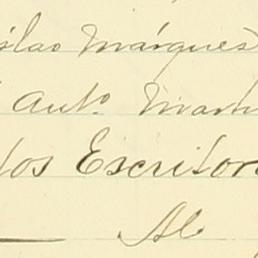 slao Márques
Anto Mart
tos Escritor
Al